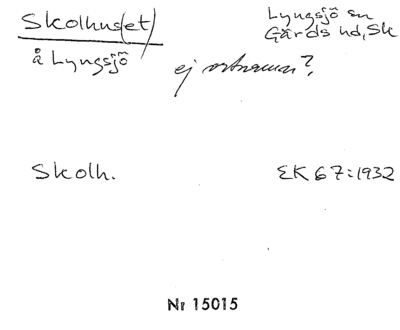 Skolhus(et)
Lyngsjö sn
Gärds hd, Sk
å Lyngsjö
ej ortnamn?
Skolh.
EK 67:1932
Nr 15015